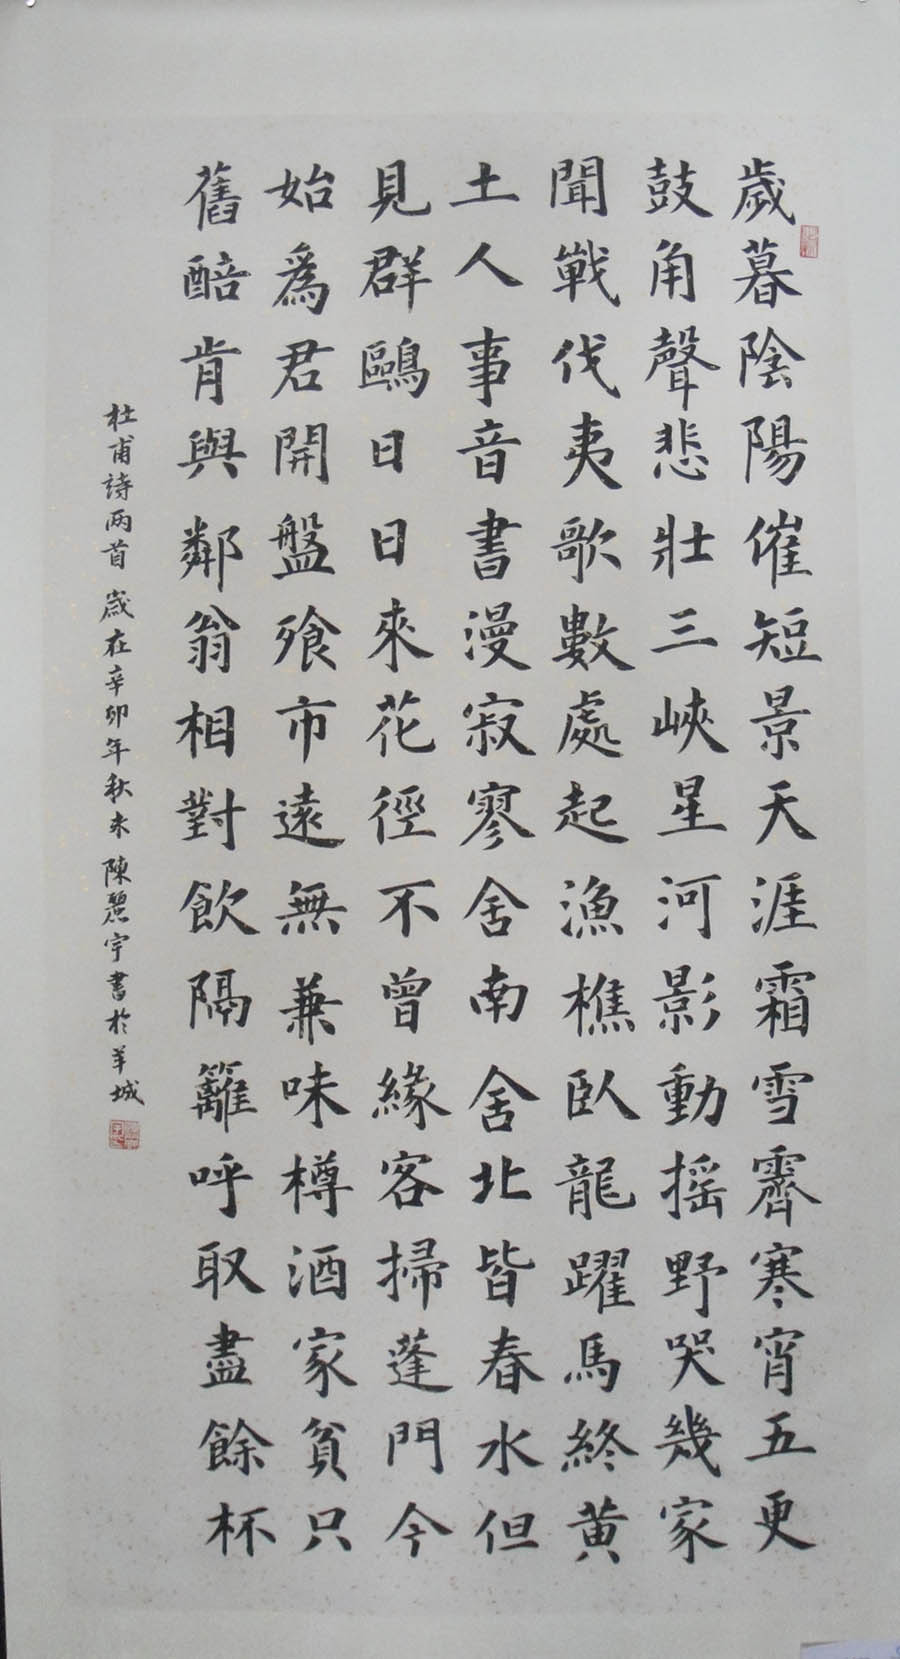 歲暮陰陽催短景天涯霜雪霽寒宵五更
鼓角聲悲壯三峽星河影動搖野哭幾家
聞戰伐夷歌數處起漁樵臥龍躍馬終黃
土人事音書漫寂寥舍南舍北皆春水但
見群鷗日日來花徑不曾緣客掃蓬門今
始爲君開盤飧市遠無兼味樽酒家貧只
舊醅肯與鄰翁相對飲隔籬呼取盡餘杯
杜甫詩两首 歲在辛卯年秋末 陳麗宇書於羊城